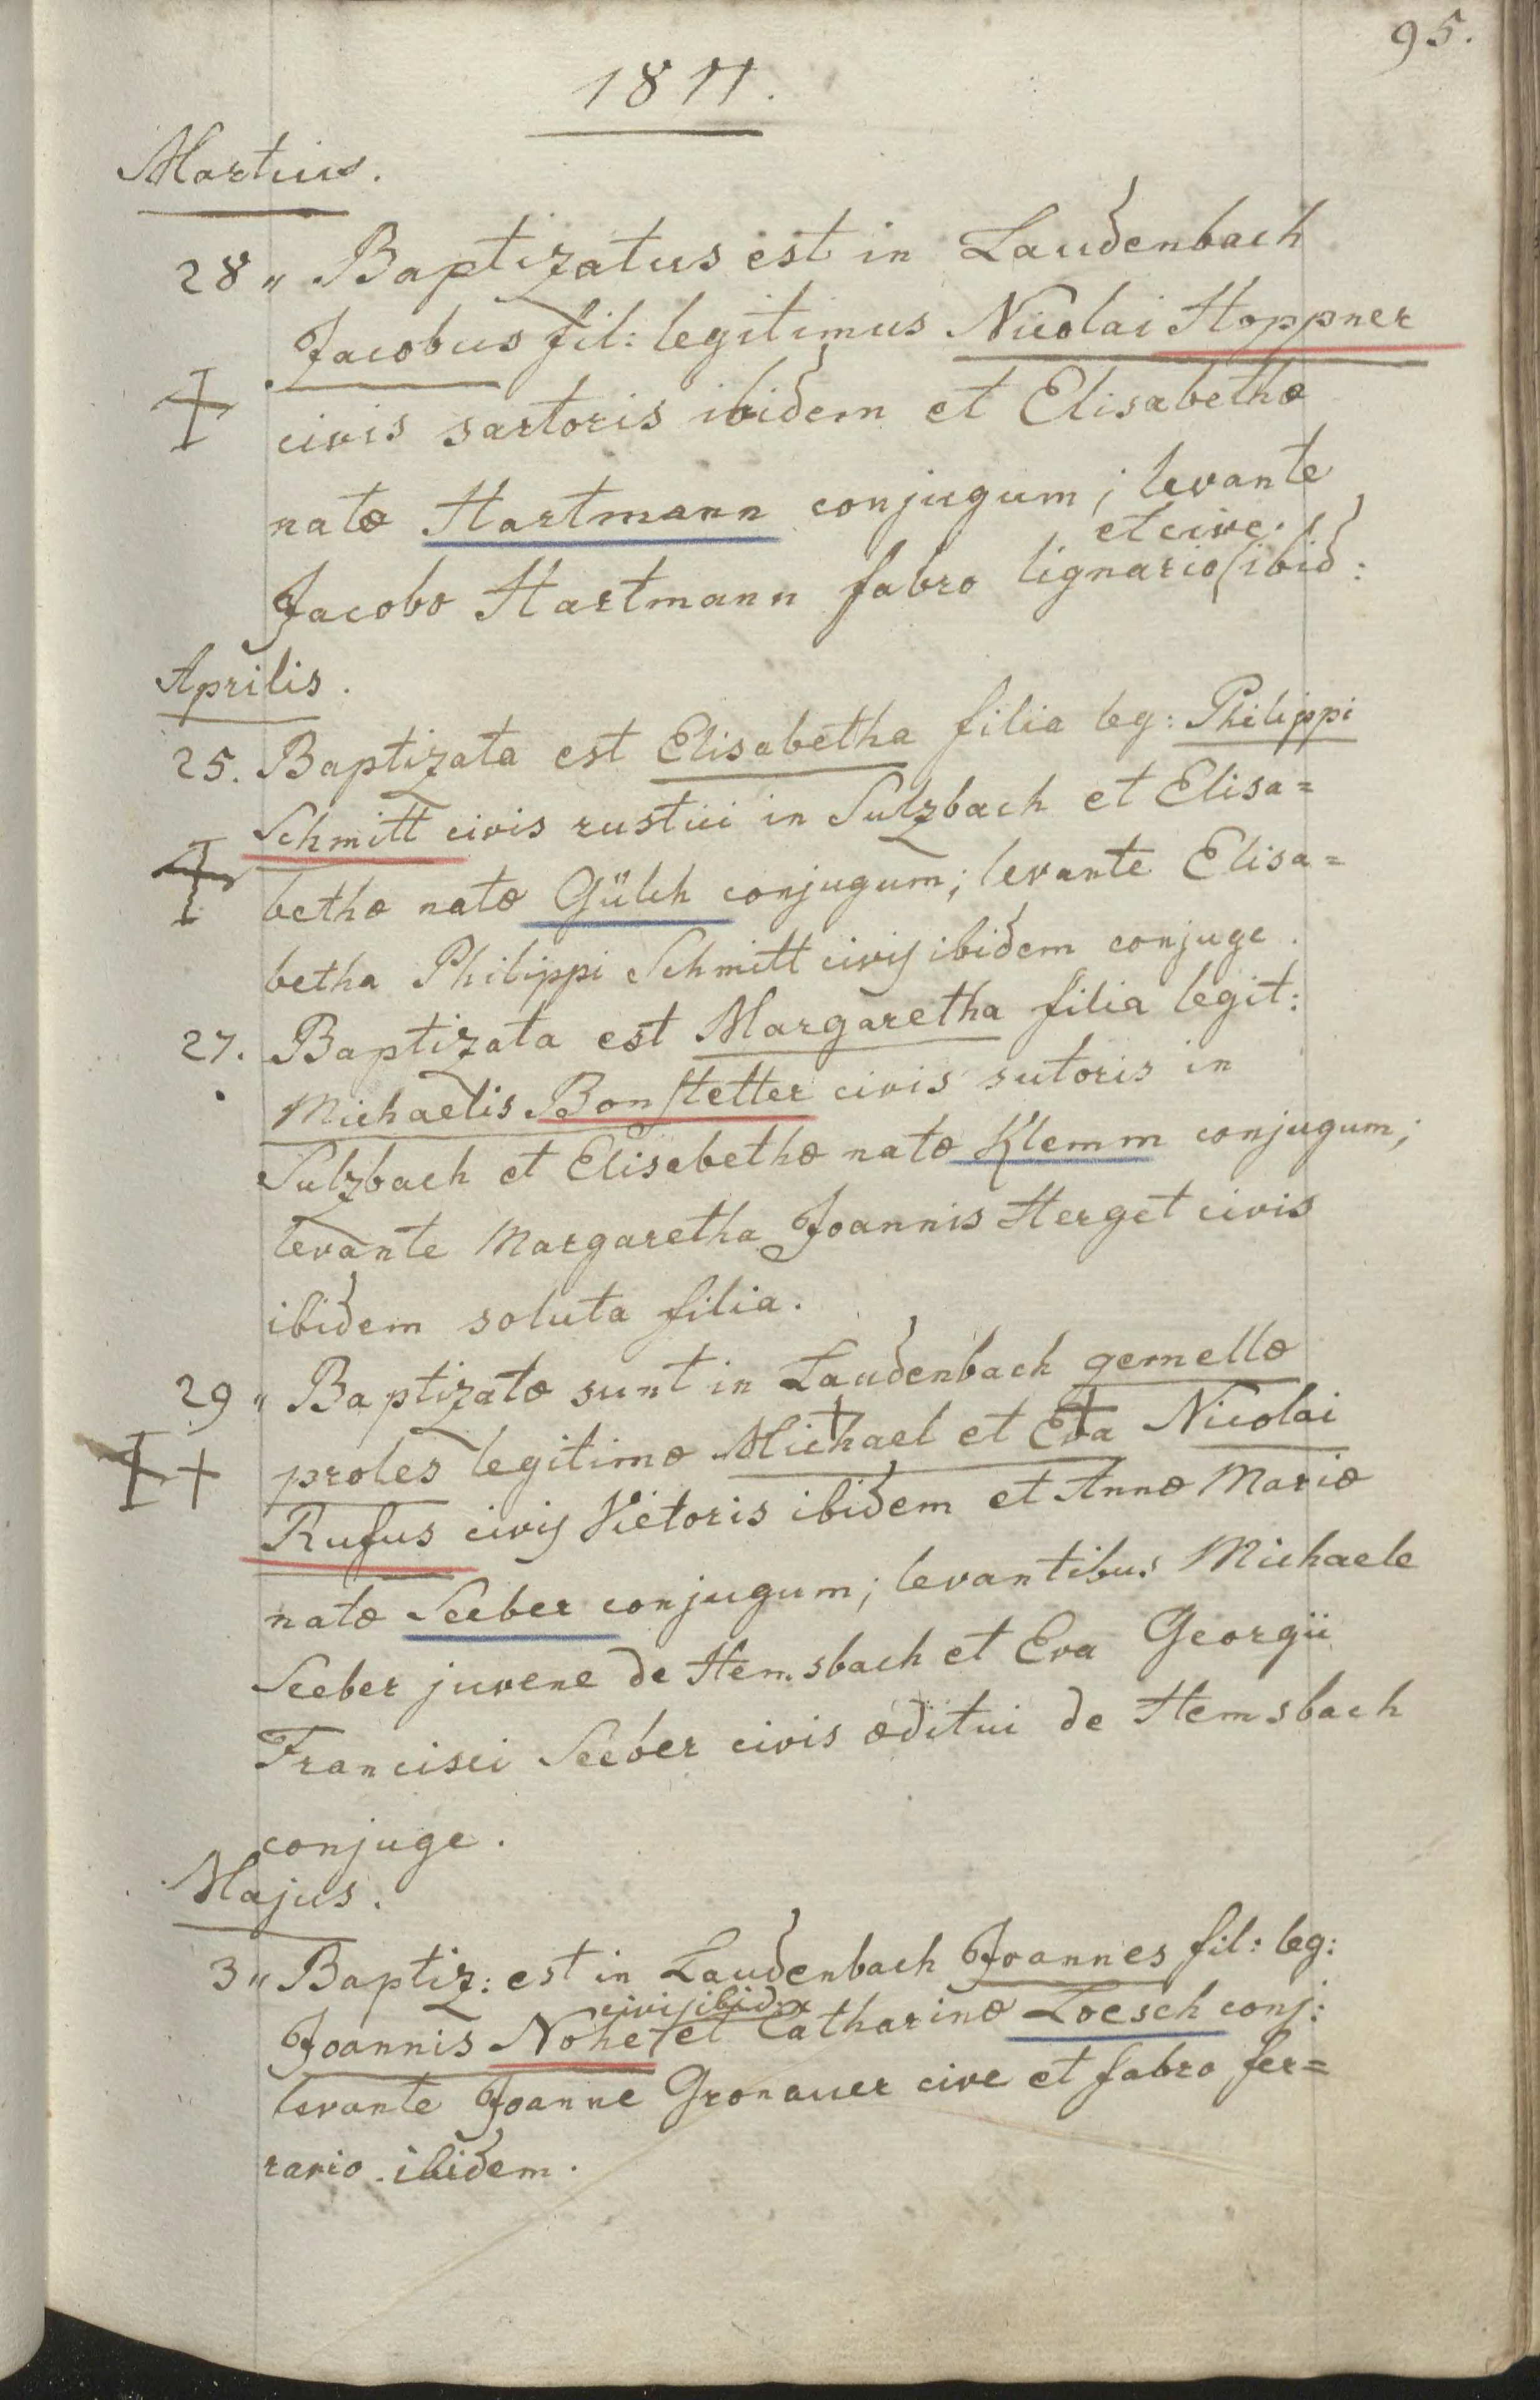 95.
1811.
Martius.
28 " Baptizatus est in Laudenbach
Jacobus fil: legitimus Nicolai Hoppner
civis sartoris ibidem et Elisabethæ
natæ Hartmann conjugum; levante
et cive
Jacobo Hartmann fabro lignario ibid:
Aprilis.
25. Baptizata est Elisabetha filia leg: Philippi
Schmitt civis rustici in Sulzbach et Elisa=
bethæ natæ Gülch conjugum; levante Elisa=
betha Philippi Schmitt civis ibidem conjuge.
27. Baptizata est Margaretha filia legit:
Michaelis Bonstetter civis sutoris in
Sulzbach et Elisabethæ natæ Klemm conjugum;
levante Margaretha Joannis Herget civis
ibidem soluta filia.
29 " Baptizatæ sunt in Laudenbach gemellæ
proles legitimæ Michael et Eva Nicolai
Rufus civis Vietoris ibidem et Annæ Mariæ
natæ Seeber conjugum; levantibus Michaele
Seeber juvene de Hemsbach et Eva Georgii
Francisci Seeber civis æditui de Hemsbach
conjuge.
Majus.
3 " Baptiz: est in Laudenbach Joannes fil: leg:
civis ibidem
Joannis Nohe et Catharinæ Loesch conj:
levante Joanne Gronauer cive et fabro fer=
rario ibidem.